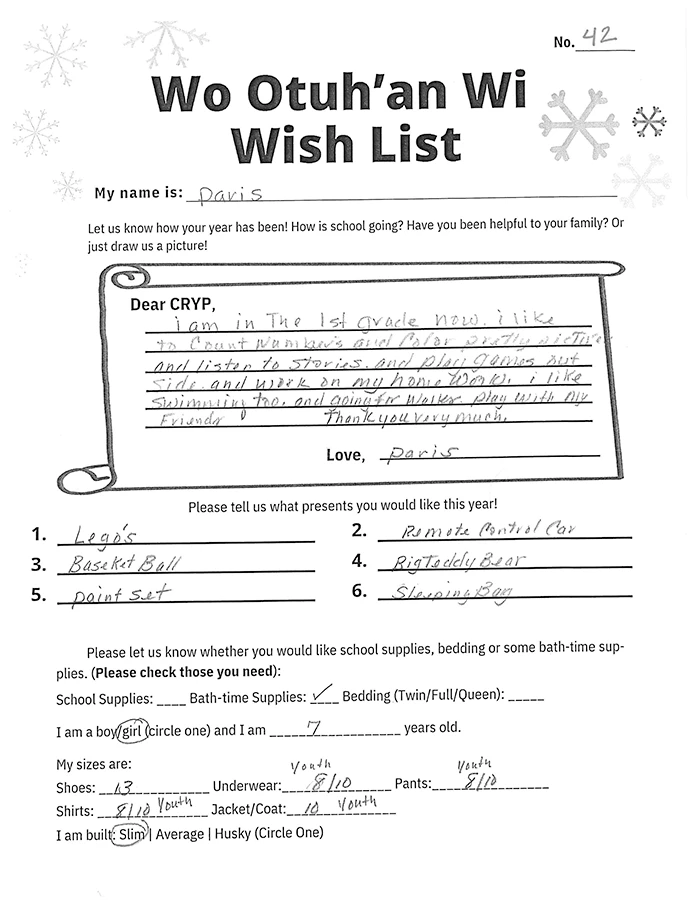 No. 42
Wo Otuh'an Wi
Wish List
My name is: Paris
Let us know how your year has been! How is school going? Have you been helpful to your family? Or
just draw us a picture!
Dear CRYP,
i am in The 1st grade now. i like
to Count Numbers and Color pretty picture
and listen to stories. and play games out
side. and work on my home work. i like
Swimming too. and going for walks. play with my
Friends Thank you very much.
Love, Paris
Please tell us what presents you would like this year!
1. Lego's 2. Remote Control Car
3. Baseket Ball 4. Big Teddy Bear
5. paint set 6. Sleeping Bag
Please let us know whether you would like school supplies, bedding or some bath-time sup-
plies. (Please check those you need):
School Supplies: ____ Bath-time Supplies: ✓ Bedding (Twin/Full/Queen): _____
I am a boy/girl (circle one) and I am 7 years old.
My sizes are:
Shoes: 13 Underwear: Youth 8/10 Pants: Youth 8/10
Shirts: 8/10 Youth Jacket/Coat: 10 Youth
I am built: Slim | Average | Husky (Circle One)